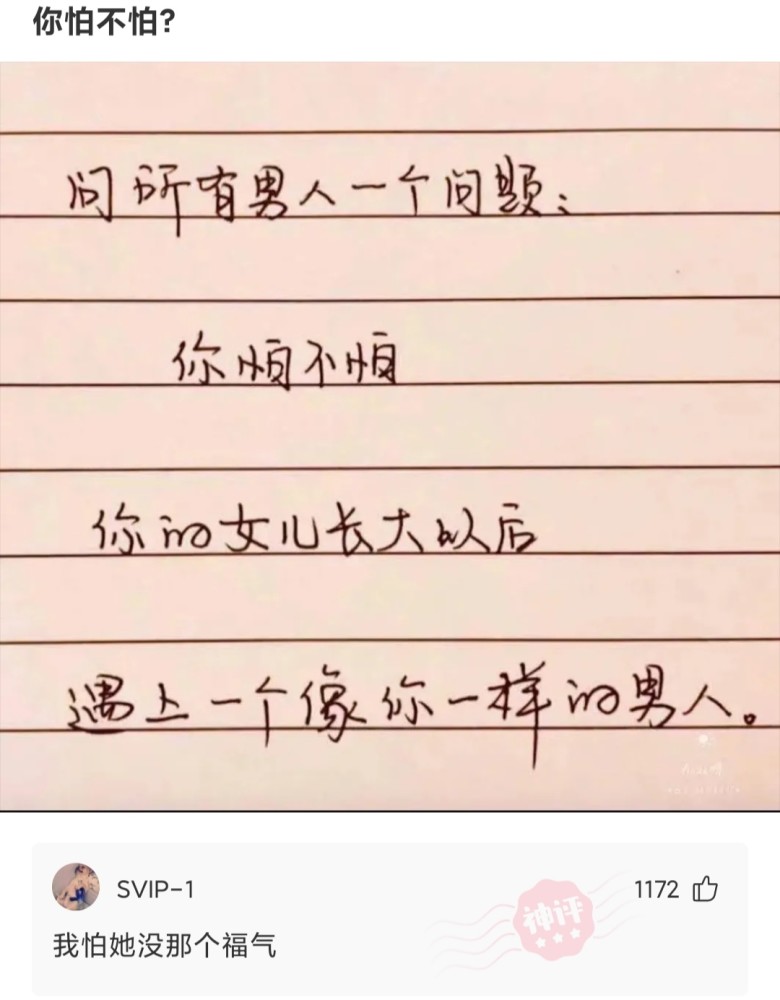 你怕不怕?
问所有男人一个问题:
你怕不怕
你的女儿长大以后
遇上一个像你一样的男人。
SVIP-1
1172
神评
我怕她没那个福气